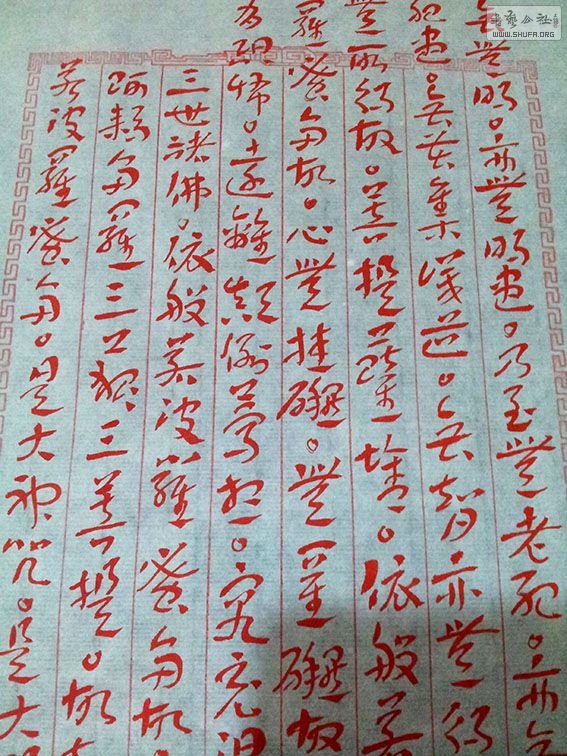 書藝公社
WWW.SHUFA.ORG
無無明。亦無明盡。乃至無老死。亦無
死盡。無苦集滅道。無智亦無得
無所得故。菩提薩埵。依般若
羅蜜多故。心無挂礙。無罣礙故
有恐怖。遠離顛倒夢想。究竟涅
三世諸佛。依般若波羅蜜多故
阿耨多羅三藐三菩提。故
若波羅蜜多。是大神咒。是大